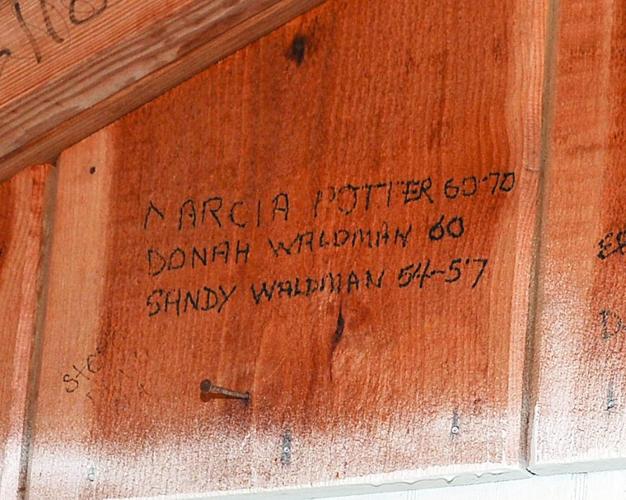 MARCIA POTTER 60-70
DONAH WALDMAN 60
SANDY WALDMAN 54-57